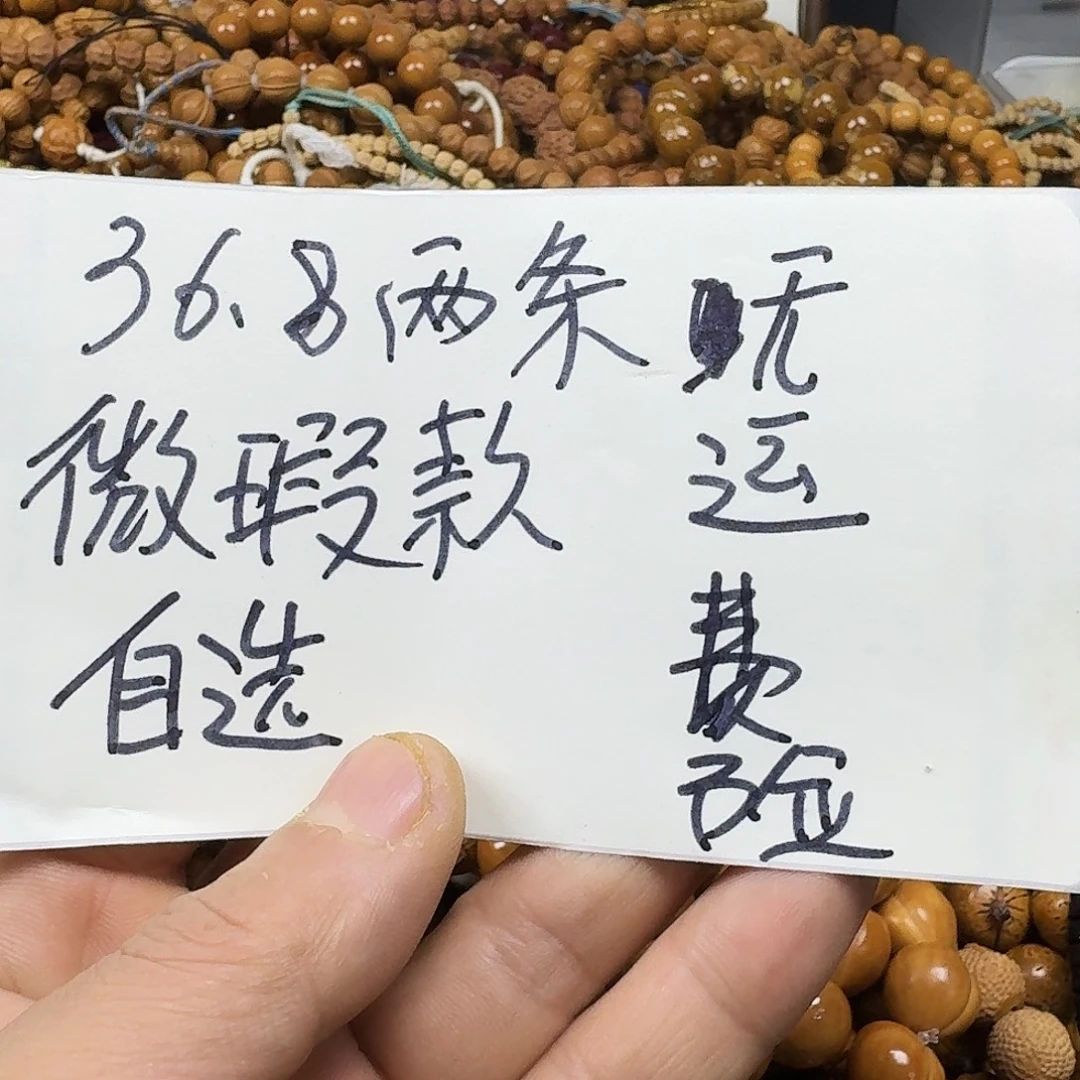 36.8两条
微瑕款
自选
无
运
费
险